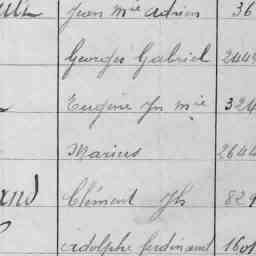 Jean Mie Adrien 36
Georges Gabriel 2449
Eugène Jn Mie 324
Marius 2644
Clément Jh 829
Adolphe Ferdinand 1601